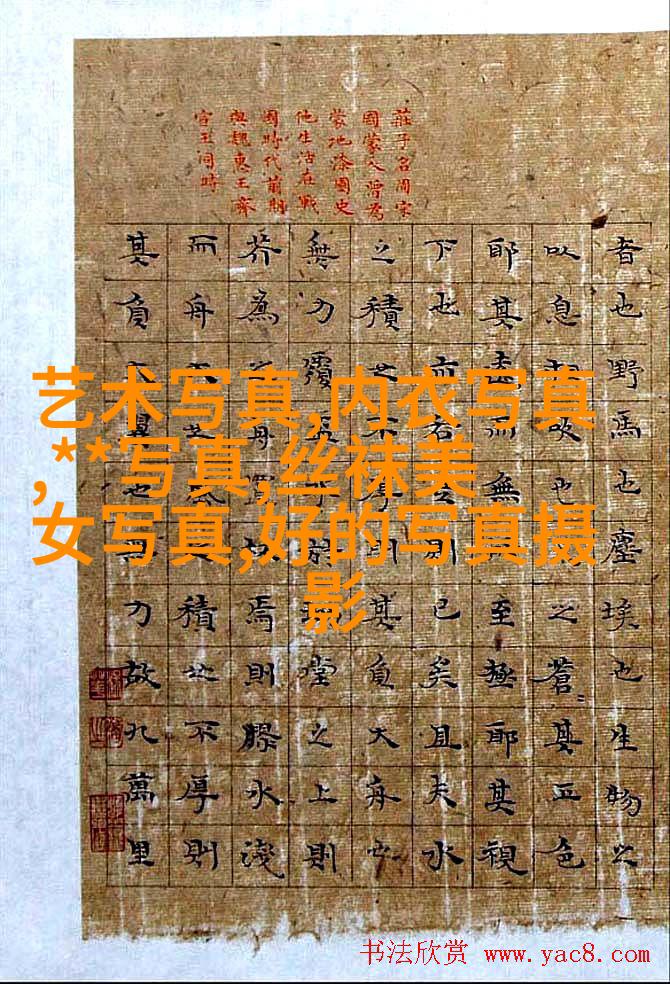 艺术写真,内衣写真
,**写真,丝袜美
女写真,好的写真摄
影
莊子名周宋
國蒙人曾為
蒙地漆園史
他生活在戰
國時代前期
與魏惠王齊
宣王同時
者也野馬也塵埃也生物之
以息相吹也之蒼其正色
耶其遠而無至極耶其視
下也亦若是則已矣且夫水
之積也不厚則其負大舟也
無力覆杯於堂之上則
芥為之舟置杯焉則膠水淺
而舟大也積也不厚則
其負大翼也無力故九萬里
书法欣赏 www.yac8.com